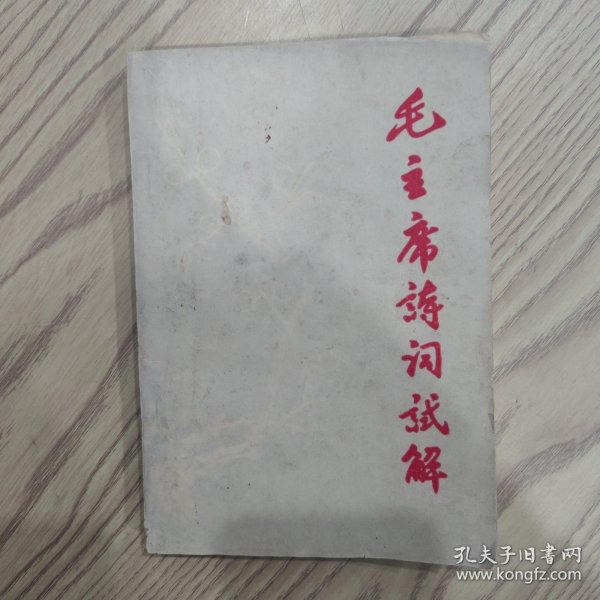 毛主席诗词試解
孔夫子旧書网
www.kongfz.com